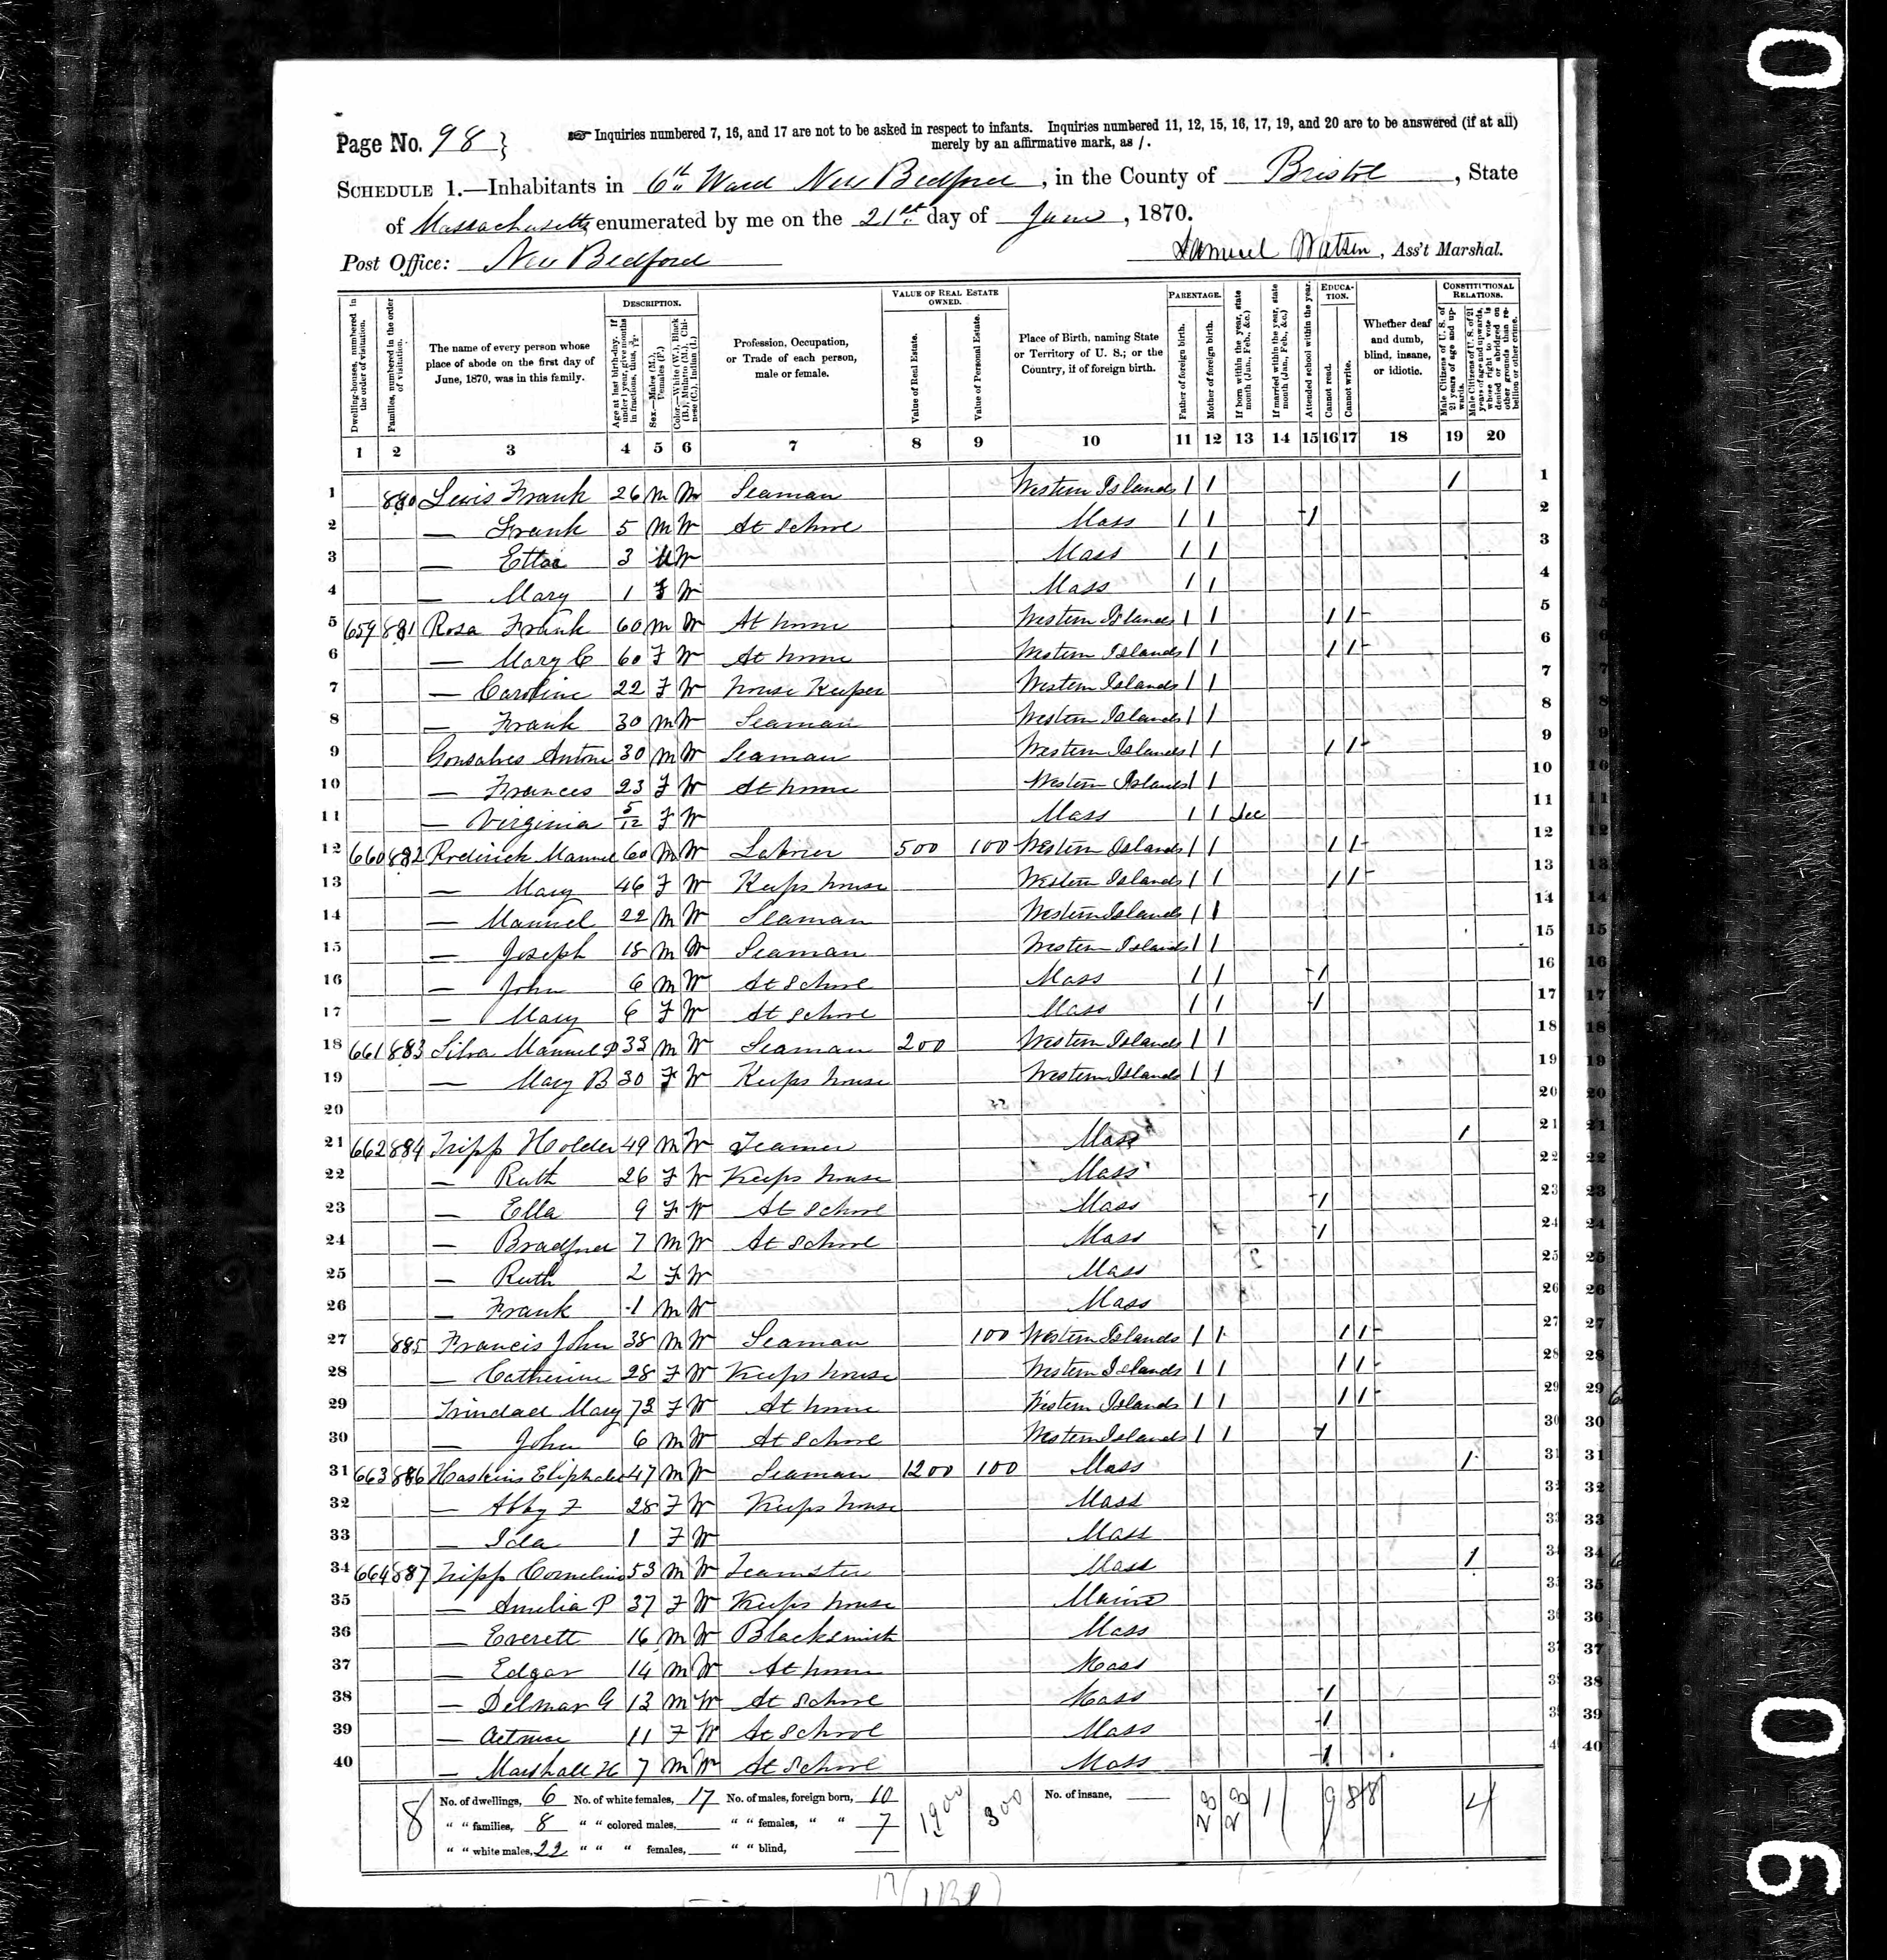 Page No. 98 }
☞ Inquiries numbered 7, 16, and 17 are not to be asked in respect to infants. Inquiries numbered 11, 12, 15, 16, 17, 19, and 20 are to be answered (if at all)
merely by an affirmative mark, as /.
SCHEDULE 1.—Inhabitants in 6th Ward New Bedford, in the County of Bristol, State
of Massachusetts enumerated by me on the 21st day of June, 1870.
Post Office: New Bedford
Samuel Watson, Ass't Marshal.
Dwelling-houses, numbered in the order of visitation.
Families, numbered in the order of visitation.
The name of every person whose place of abode on the first day of June, 1870, was in this family.
DESCRIPTION.
Age at last birth-day. If under 1 year, give months in fractions, thus, 3/12.
Sex.—Males (M.), Females (F.)
Color.—White (W.), Black (B.), Mulatto (M.), Chinese (C.), Indian (I.)
Profession, Occupation, or Trade of each person, male or female.
VALUE OF REAL ESTATE OWNED.
Value of Real Estate.
Value of Personal Estate.
Place of Birth, naming State or Territory of U. S.; or the Country, if of foreign birth.
PARENTAGE.
Father of foreign birth.
Mother of foreign birth.
If born within the year, state month (Jan., Feb., &c.)
If married within the year, state month (Jan., Feb., &c.)
Attended school within the year.
EDUCATION.
Cannot read.
Cannot write.
Whether deaf and dumb, blind, insane, or idiotic.
CONSTITUTIONAL RELATIONS.
Male Citizens of U. S. of 21 years of age and upwards.
Male Citizens of U. S. of 21 years of age and upwards, whose right to vote is denied or abridged on other grounds than rebellion or other crime.
1 2 3 4 5 6 7 8 9 10 11 12 13 14 15 16 17 18 19 20
1 880 Lewis Frank 26 M Seaman Western Islands 1 1 1 1
2 — Frank 5 M W At School Mass 1 1 1 2
3 — Etta 3 W Mass 1 1 3
4 — Mary 1 F W Mass 1 1 4
5 659 881 Rosa Frank 60 M W At home Western Islands 1 1 1 1 5
6 — Mary C 60 F W At home Western Islands 1 1 1 1 6
7 — Caroline 22 F W House Keeper Western Islands 1 1 7
8 — Frank 30 M W Seaman Western Islands 1 1 8
9 Gonsalves Antone 30 M W Seaman Western Islands 1 1 1 1 9
10 — Frances 23 F W At home Western Islands 1 1 10
11 — Virginia 5/12 F W Mass 1 1 Dec 11
12 660 882 Roderick Manuel 60 M W Laborer 500 100 Western Islands 1 1 1 1 12
13 — Mary 46 F W Keeps house Western Islands 1 1 1 1 13
14 — Manuel 22 M W Seaman Western Islands 1 1 14
15 — Joseph 18 M W Seaman Western Islands 1 1 15
16 — John 6 M W At School Mass 1 1 1 16
17 — Mary 6 F W At School Mass 1 1 1 17
18 661 883 Silva Manuel P 33 M W Seaman 200 Western Islands 1 1 18
19 — Mary B 30 F W Keeps house Western Islands 1 1 19
20 20
21 662 884 Tripp Holder 49 M W Mass 1 21
22 — Ruth 26 F W Keeps house Mass 22
23 — Ella 9 F W At School Mass 1 23
24 — Bradford 7 M W At School Mass 1 24
25 — Ruth 2 F W Mass 25
26 — Frank 1 M W Mass 26
27 885 Francis John 38 M W Seaman 100 Western Islands 1 1 1 1 27
28 — Catherine 28 F W Keeps house Western Islands 1 1 1 1 28
29 Trindad Mary 73 F W At home Western Islands 1 1 1 1 29
30 — John 6 M W At School Western Islands 1 1 1 30
31 663 886 Haskins Eliphalet 47 M W Seaman 1200 100 Mass 1 31
32 — Abby F 28 F W Keeps house Mass 32
33 — Ida 1 F W Mass 33
34 664 887 Tripp Cornelius 53 M W Teamster Mass 1 34
35 — Amelia P 37 F W Keeps house Maine 35
36 — Everett 16 M W Blacksmith Mass 36
37 — Edgar 14 M W At home Mass 37
38 — Delmar G 13 M W At School Mass 1 38
39 — 11 F W At School Mass 1 39
40 — Marshall H 7 M W At School Mass 1 40
8 No. of dwellings, 6 No. of white females, 17 No. of males, foreign born, 10 1900 300 No. of insane, 23 23 1 9 8 8 4
" " families, 8 " " colored males, " " females, " " 7
" " white males, 22 " " " females, " " blind,
0
0
9